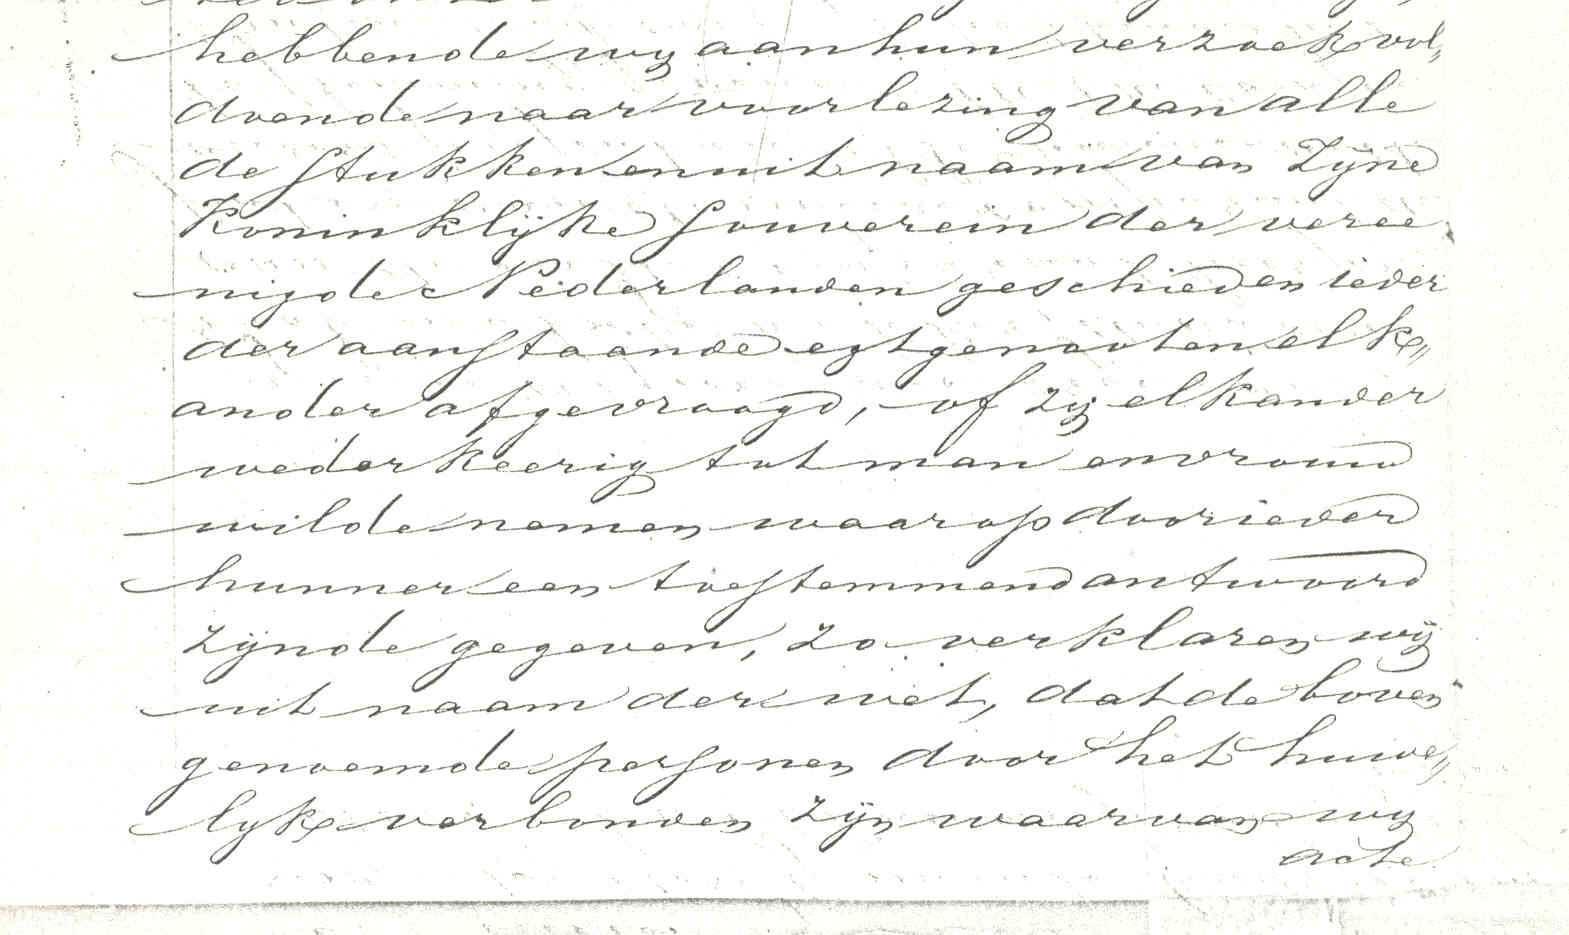 hebbende wy aan hun verzoek vol„
doende naar voorlezing van alle
de stukken en uit naam van Zyne
Koninklijke Souverein der veree
nigde Nederlanden geschieden ieder
der aanstaande egtgenooten elk„
ander afgevraagd, of zy elkander
wederkeerig tot man en vrouw
wilde nemen waar op door ieder
hunner een toestemmend antwoord
zijnde gegeven, zo verklaren wij
uit naam der wet, dat de boven
genoemde personen door het huwe„
lyk verbonden zijn waarvan wy
acte